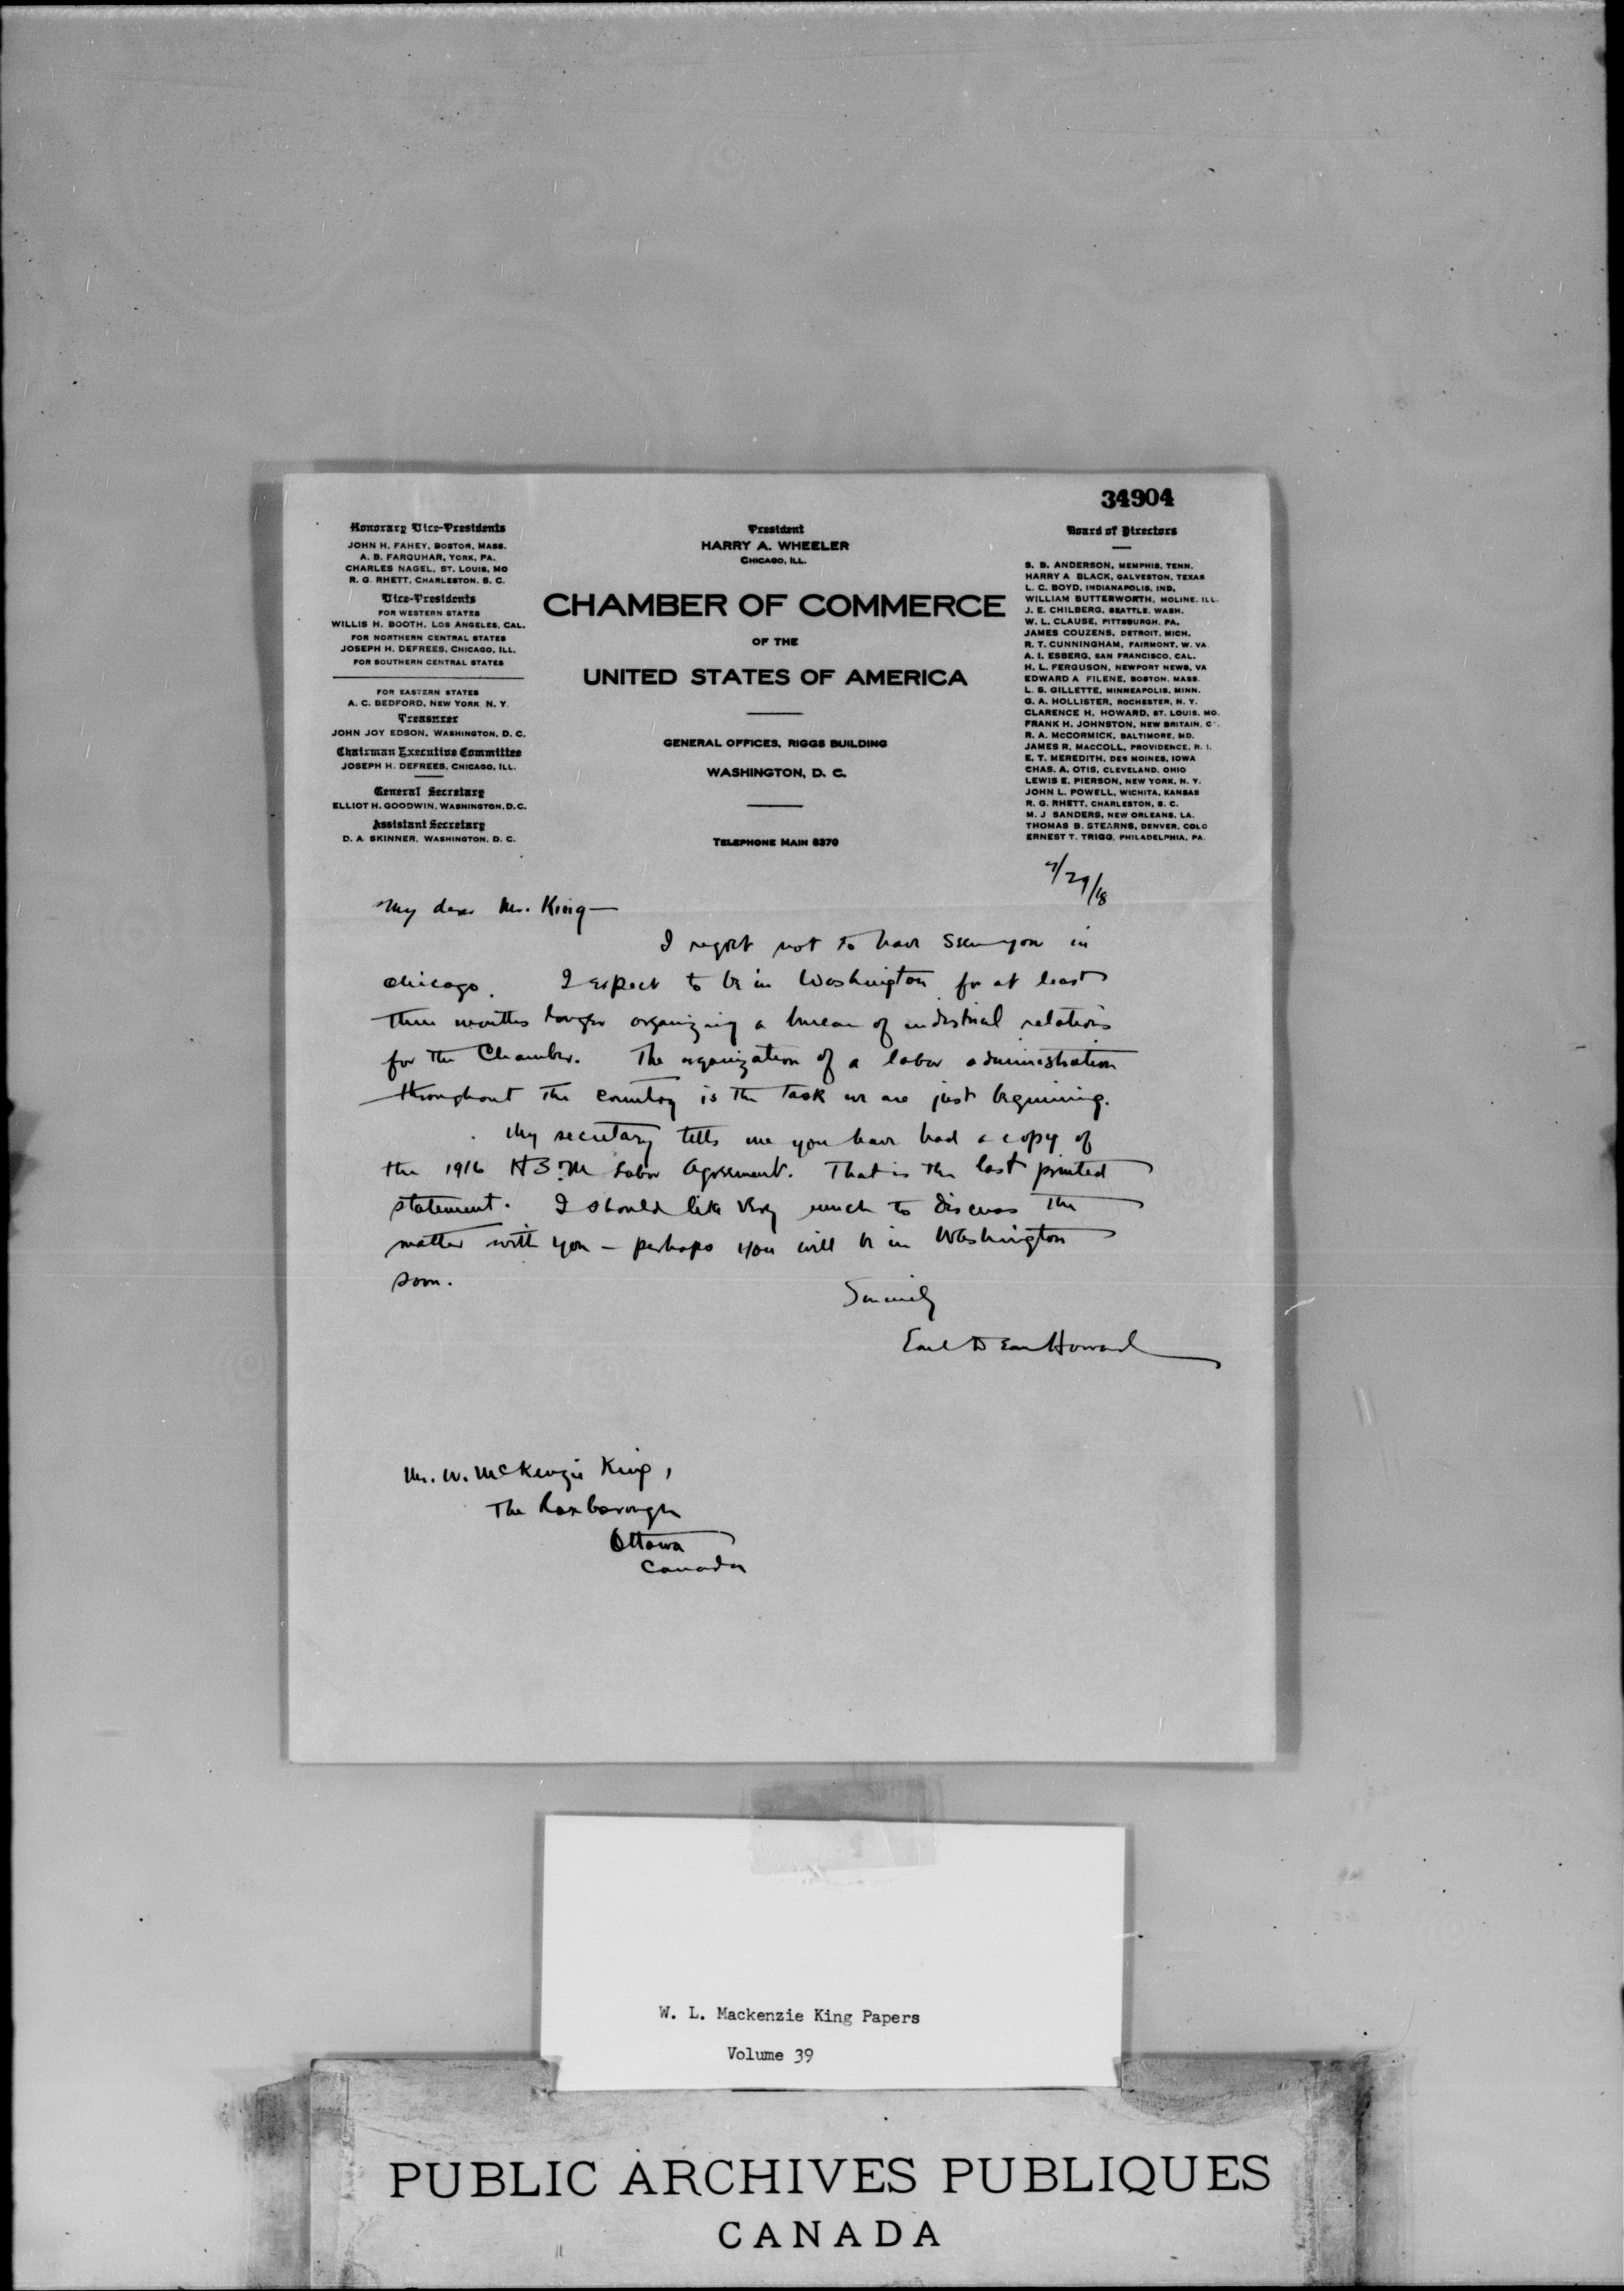 34904
Honorary Vice-Presidents
JOHN H. FAHEY, BOSTON, MASS.
A. B. FARQUHAR, YORK, PA.
CHARLES NAGEL, ST. LOUIS, MO
R. G. RHETT, CHARLESTON, S. C.
Vice-Presidents
FOR WESTERN STATES
WILLIS H. BOOTH, LOS ANGELES, CAL.
FOR NORTHERN CENTRAL STATES
JOSEPH H. DEFREES, CHICAGO, ILL.
FOR SOUTHERN CENTRAL STATES
FOR EASTERN STATES
A. C. BEDFORD, NEW YORK N. Y.
Treasurer
JOHN JOY EDSON, WASHINGTON, D. C.
Chairman Executive Committee
JOSEPH H. DEFREES, CHICAGO, ILL.
General Secretary
ELLIOT H. GOODWIN, WASHINGTON, D.C.
Assistant Secretary
D. A. SKINNER, WASHINGTON, D. C.
President
HARRY A. WHEELER
CHICAGO, ILL.
CHAMBER OF COMMERCE
OF THE
UNITED STATES OF AMERICA
GENERAL OFFICES, RIGGS BUILDING
WASHINGTON, D. C.
TELEPHONE MAIN 8370
Board of Directors
S. B. ANDERSON, MEMPHIS, TENN.
HARRY A BLACK, GALVESTON, TEXAS
L. C. BOYD, INDIANAPOLIS, IND.
WILLIAM BUTTERWORTH, MOLINE, ILL.
J. E. CHILBERG, SEATTLE, WASH.
W. L. CLAUSE, PITTSBURGH, PA.
JAMES COUZENS, DETROIT, MICH.
R. T. CUNNINGHAM, FAIRMONT, W. VA
A. I. ESBERG, SAN FRANCISCO, CAL.
H. L. FERGUSON, NEWPORT NEWS, VA
EDWARD A FILENE, BOSTON, MASS.
L. S. GILLETTE, MINNEAPOLIS, MINN.
G. A. HOLLISTER, ROCHESTER, N. Y.
CLARENCE H. HOWARD, ST. LOUIS, MO.
FRANK H. JOHNSTON, NEW BRITAIN, C
R. A. MCCORMICK, BALTIMORE, MD.
JAMES R. MACCOLL, PROVIDENCE, R. I.
E. T. MEREDITH, DES MOINES, IOWA
CHAS. A. OTIS, CLEVELAND, OHIO
LEWIS E. PIERSON, NEW YORK, N. Y.
JOHN L. POWELL, WICHITA, KANSAS
R. G. RHETT, CHARLESTON, S. C.
M. J SANDERS, NEW ORLEANS, LA.
THOMAS B. STEARNS, DENVER, COLO
ERNEST T. TRIGG, PHILADELPHIA, PA.
/29/18
My dear Mr. King—
I regret not to have seen you in
Chicago. I expect to be in Washington for at least
three months longer organizing a bureau of industrial relations
for the Chamber. The organization of a labor administration
throughout the country is the task we are just beginning.
My secretary tells me you have had a copy of
the 1916 H S & M Labor Agreement. That is the last printed
statement. I should like very much to discuss the
matter with you – perhaps you will be in Washington
soon.
Sincerely
Earl Dean Howard
Mr. W. McKenzie King,
The Roxborough
Ottawa
Canada
W. L. Mackenzie King Papers
Volume 39
PUBLIC ARCHIVES PUBLIQUES
CANADA